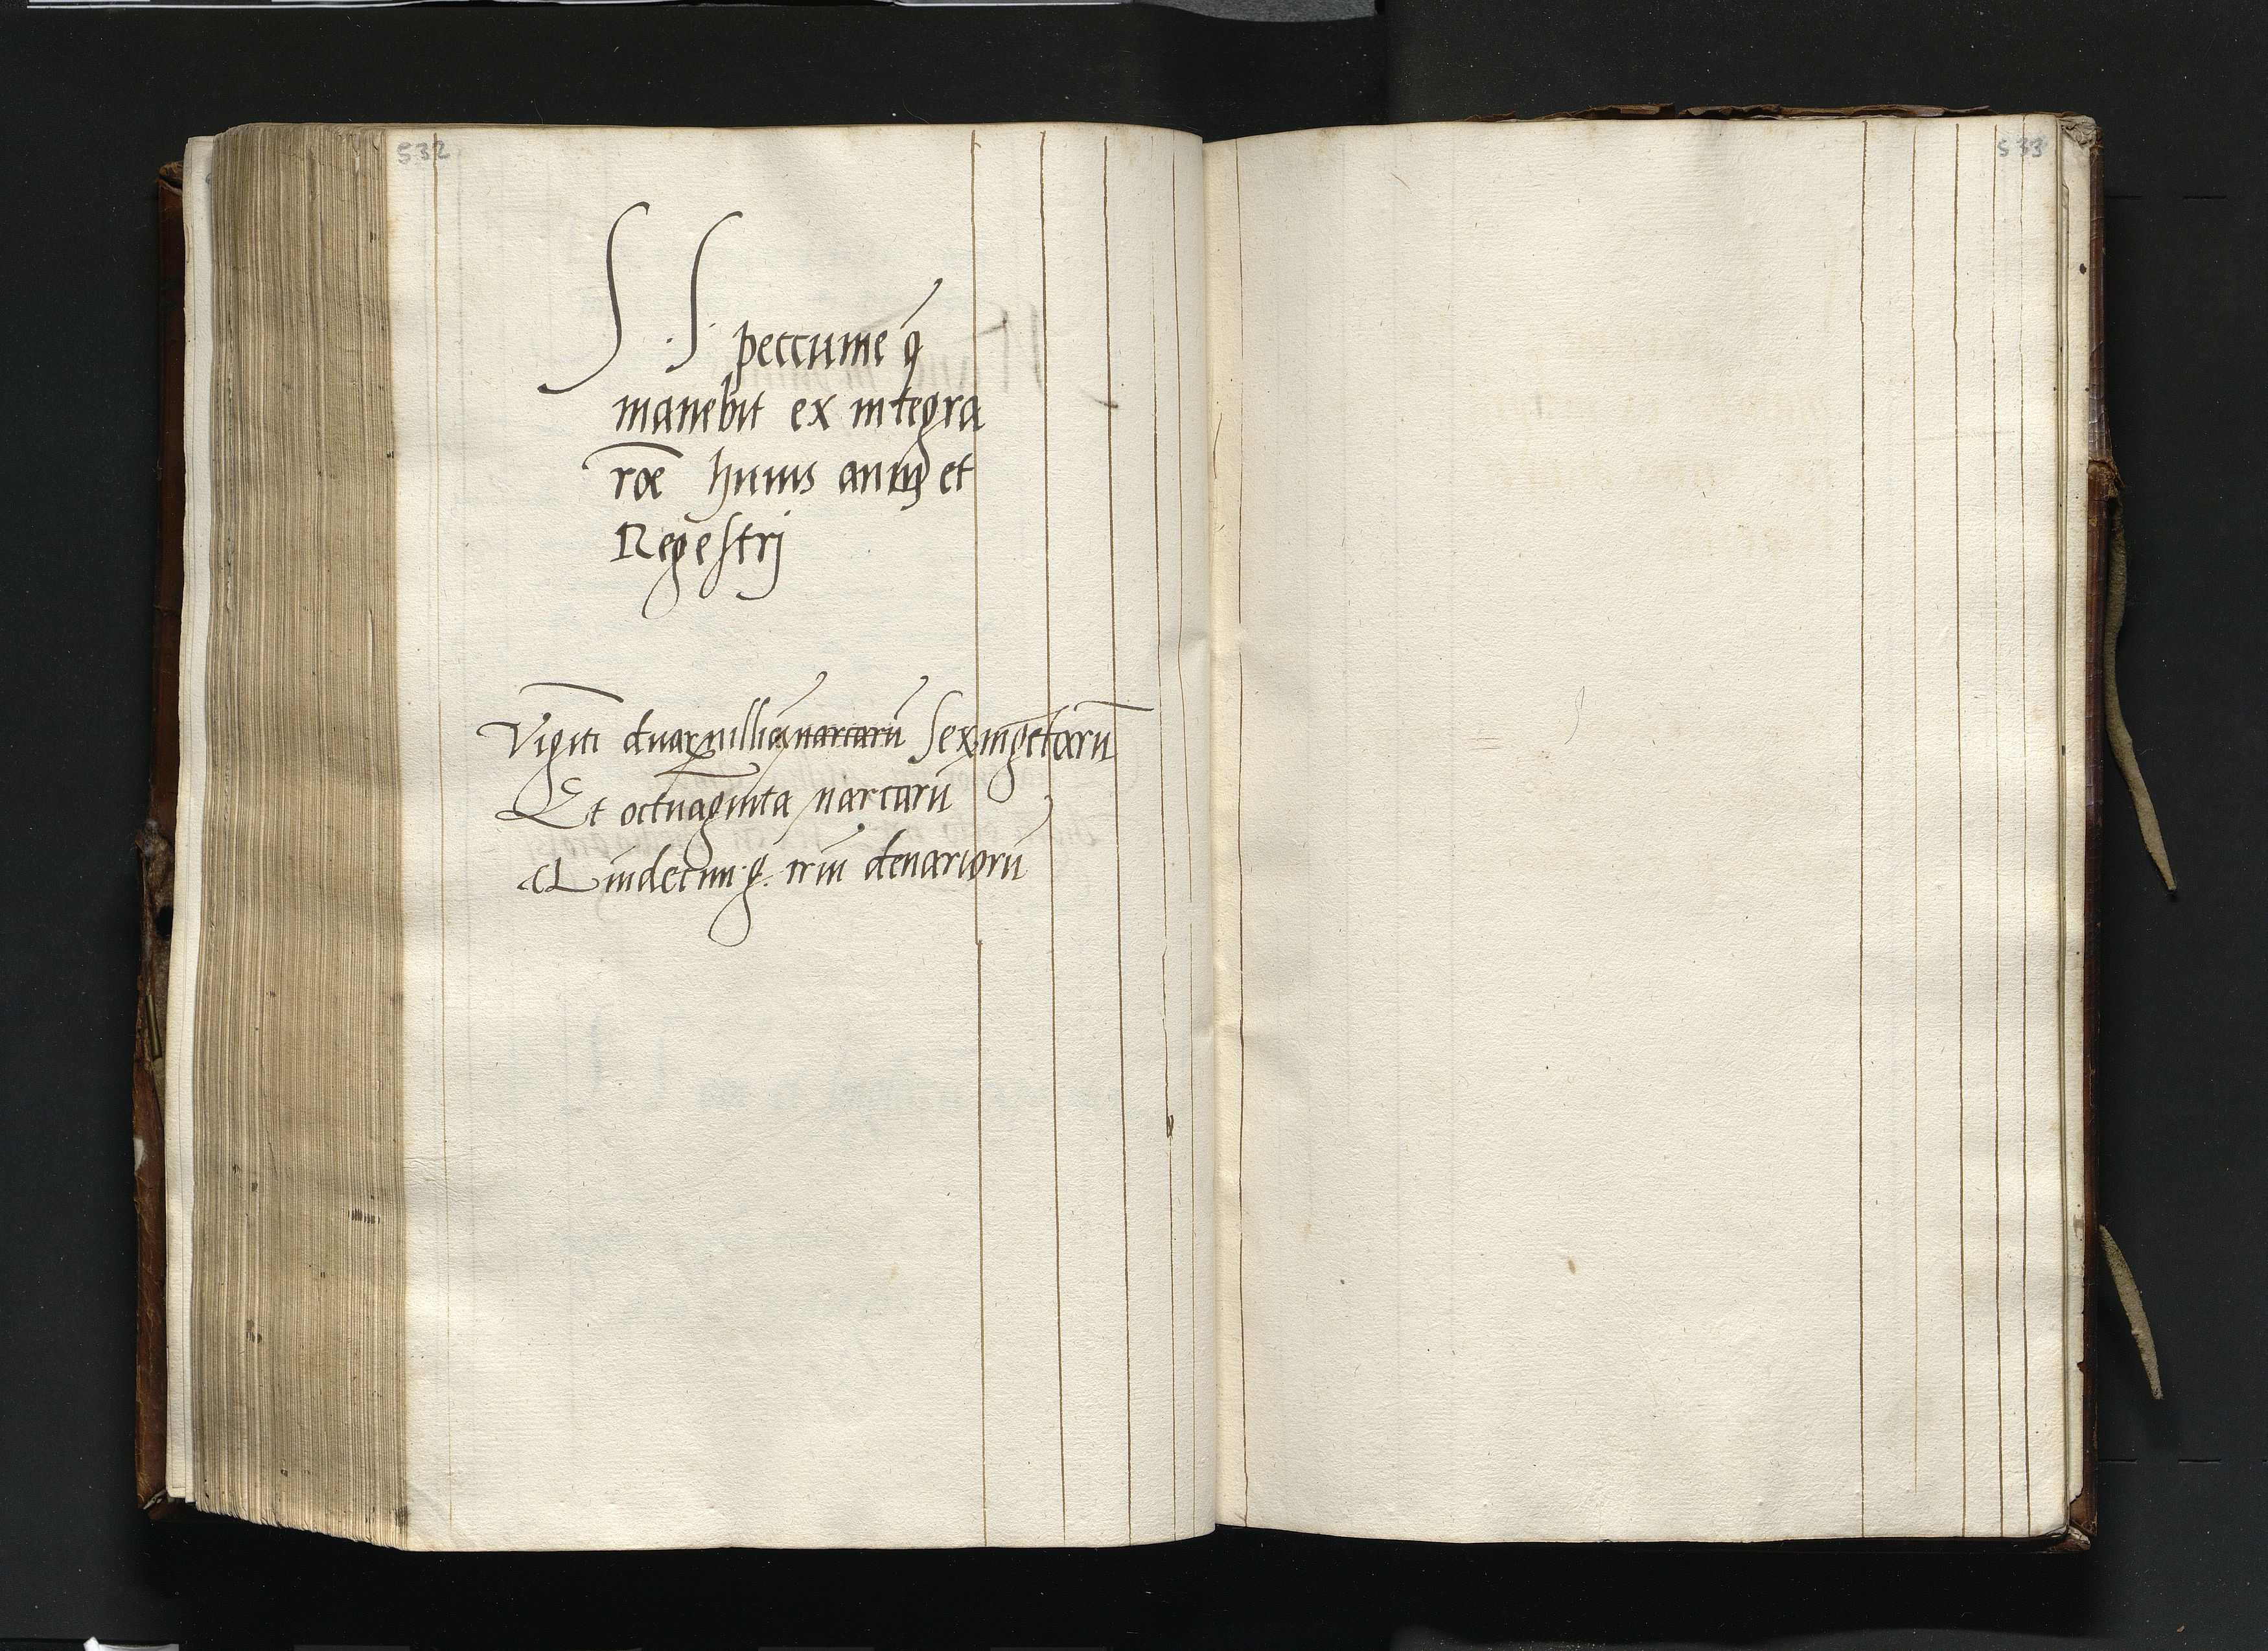 532
S S peccunie q̃
manebit ex integra
rõe huius anni et
Regestrj
Vigĩti duar millia marcarũ Sexingẽtarũ
Et octuaginta marcarũ
Quĩdecim g. triũ denariorũ
533